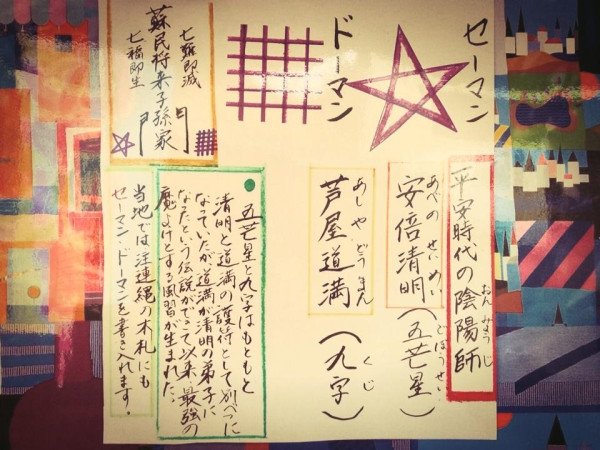 セーマン
ドーマン
平安時代の陰陽師
おんみょうじ
安倍清明(五芒星)
あべの せいめい
ごぼうせい
芦屋道満(九字)
あしや どうまん
くじ
七難即滅
蘇民将来子孫家門
七福即生
五芒星と九字はもともと
清明と道満の護符として別べつに
なっていたが道満が清明の弟子に
なったという伝説ができて以来、最強の
魔よけとする風習が生まれた。
当地では注連縄の木札にも
セーマン・ドーマンを書き入れます。